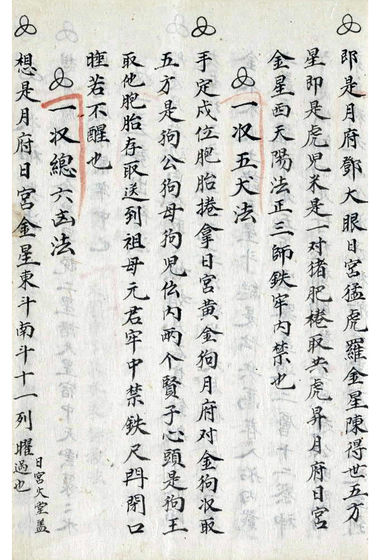 即是月府鄧大眼日宮猛虎羅金星陳得世五方
星即是虎児米是一对猪肥棬取共虎昇月府日宮
金星西天陽法正三師鉄牢内禁也
一収五犬法
手定戍位肥胎捲拿日宮黄金狗月府对金狗収取
五方是狗公狗母狗児伝内両个賢子心頭是狗王
取他肥胎存取送列祖母元君牢中禁鉄尺閂閉口
睡若不醒也
一収總六畜法
想是月府日宮金星東斗南斗十一列曜
日宮火堂盖
過也